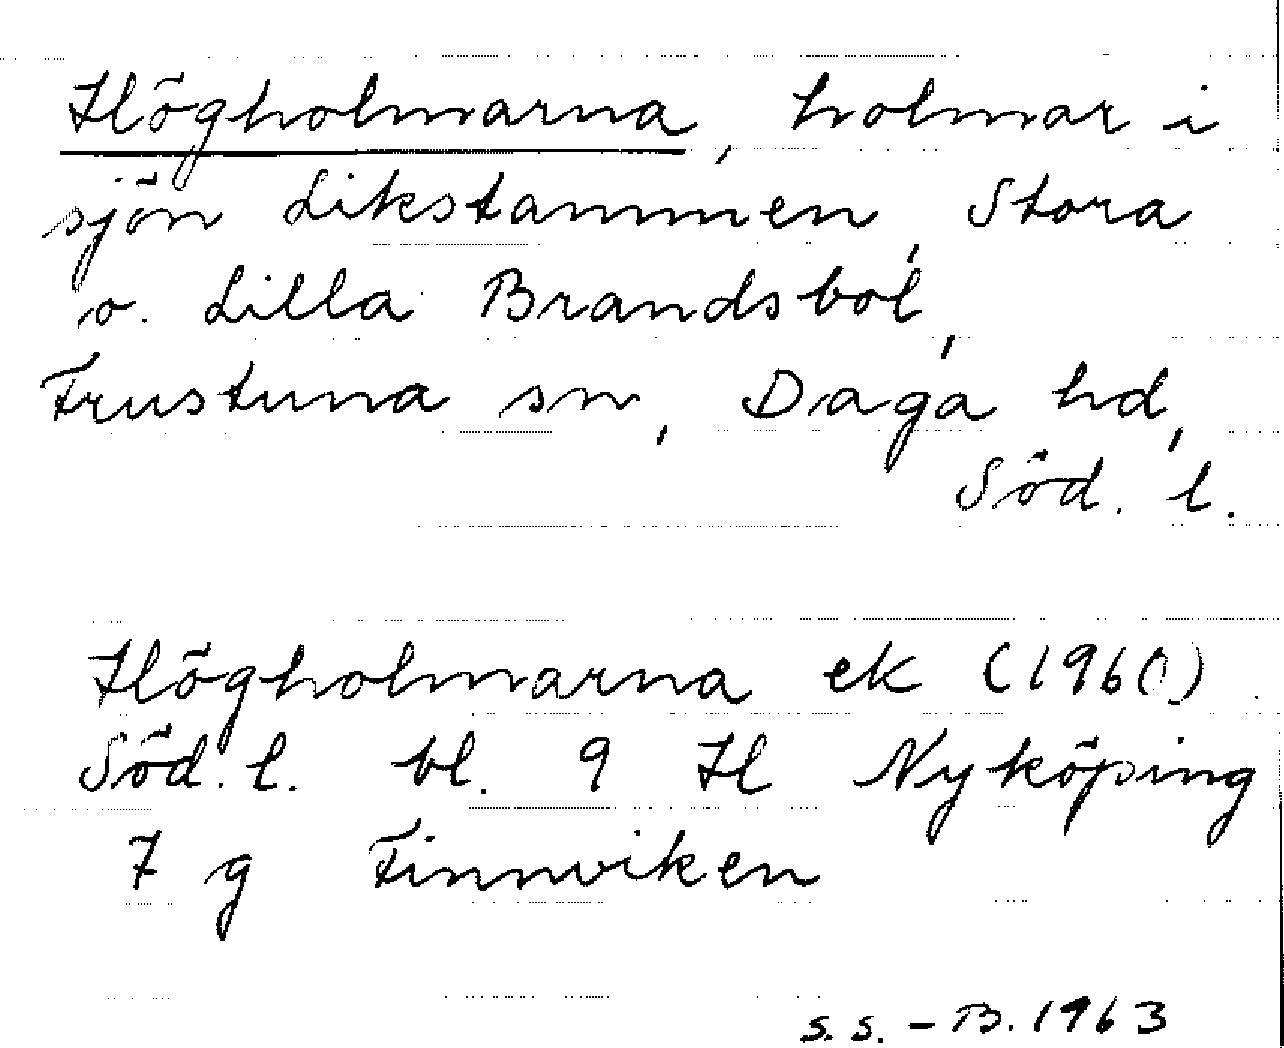 Högholmarna, holmar i
sjön Likstammen, Stora
o. Lilla Brandsbol,
Frustuna sn, Daga hd,
Söd. l.
Högholmarna ek (1960)
Söd. l. bl. 9 H Nyköping
7 g Finnviken
S. S. - B. 1963